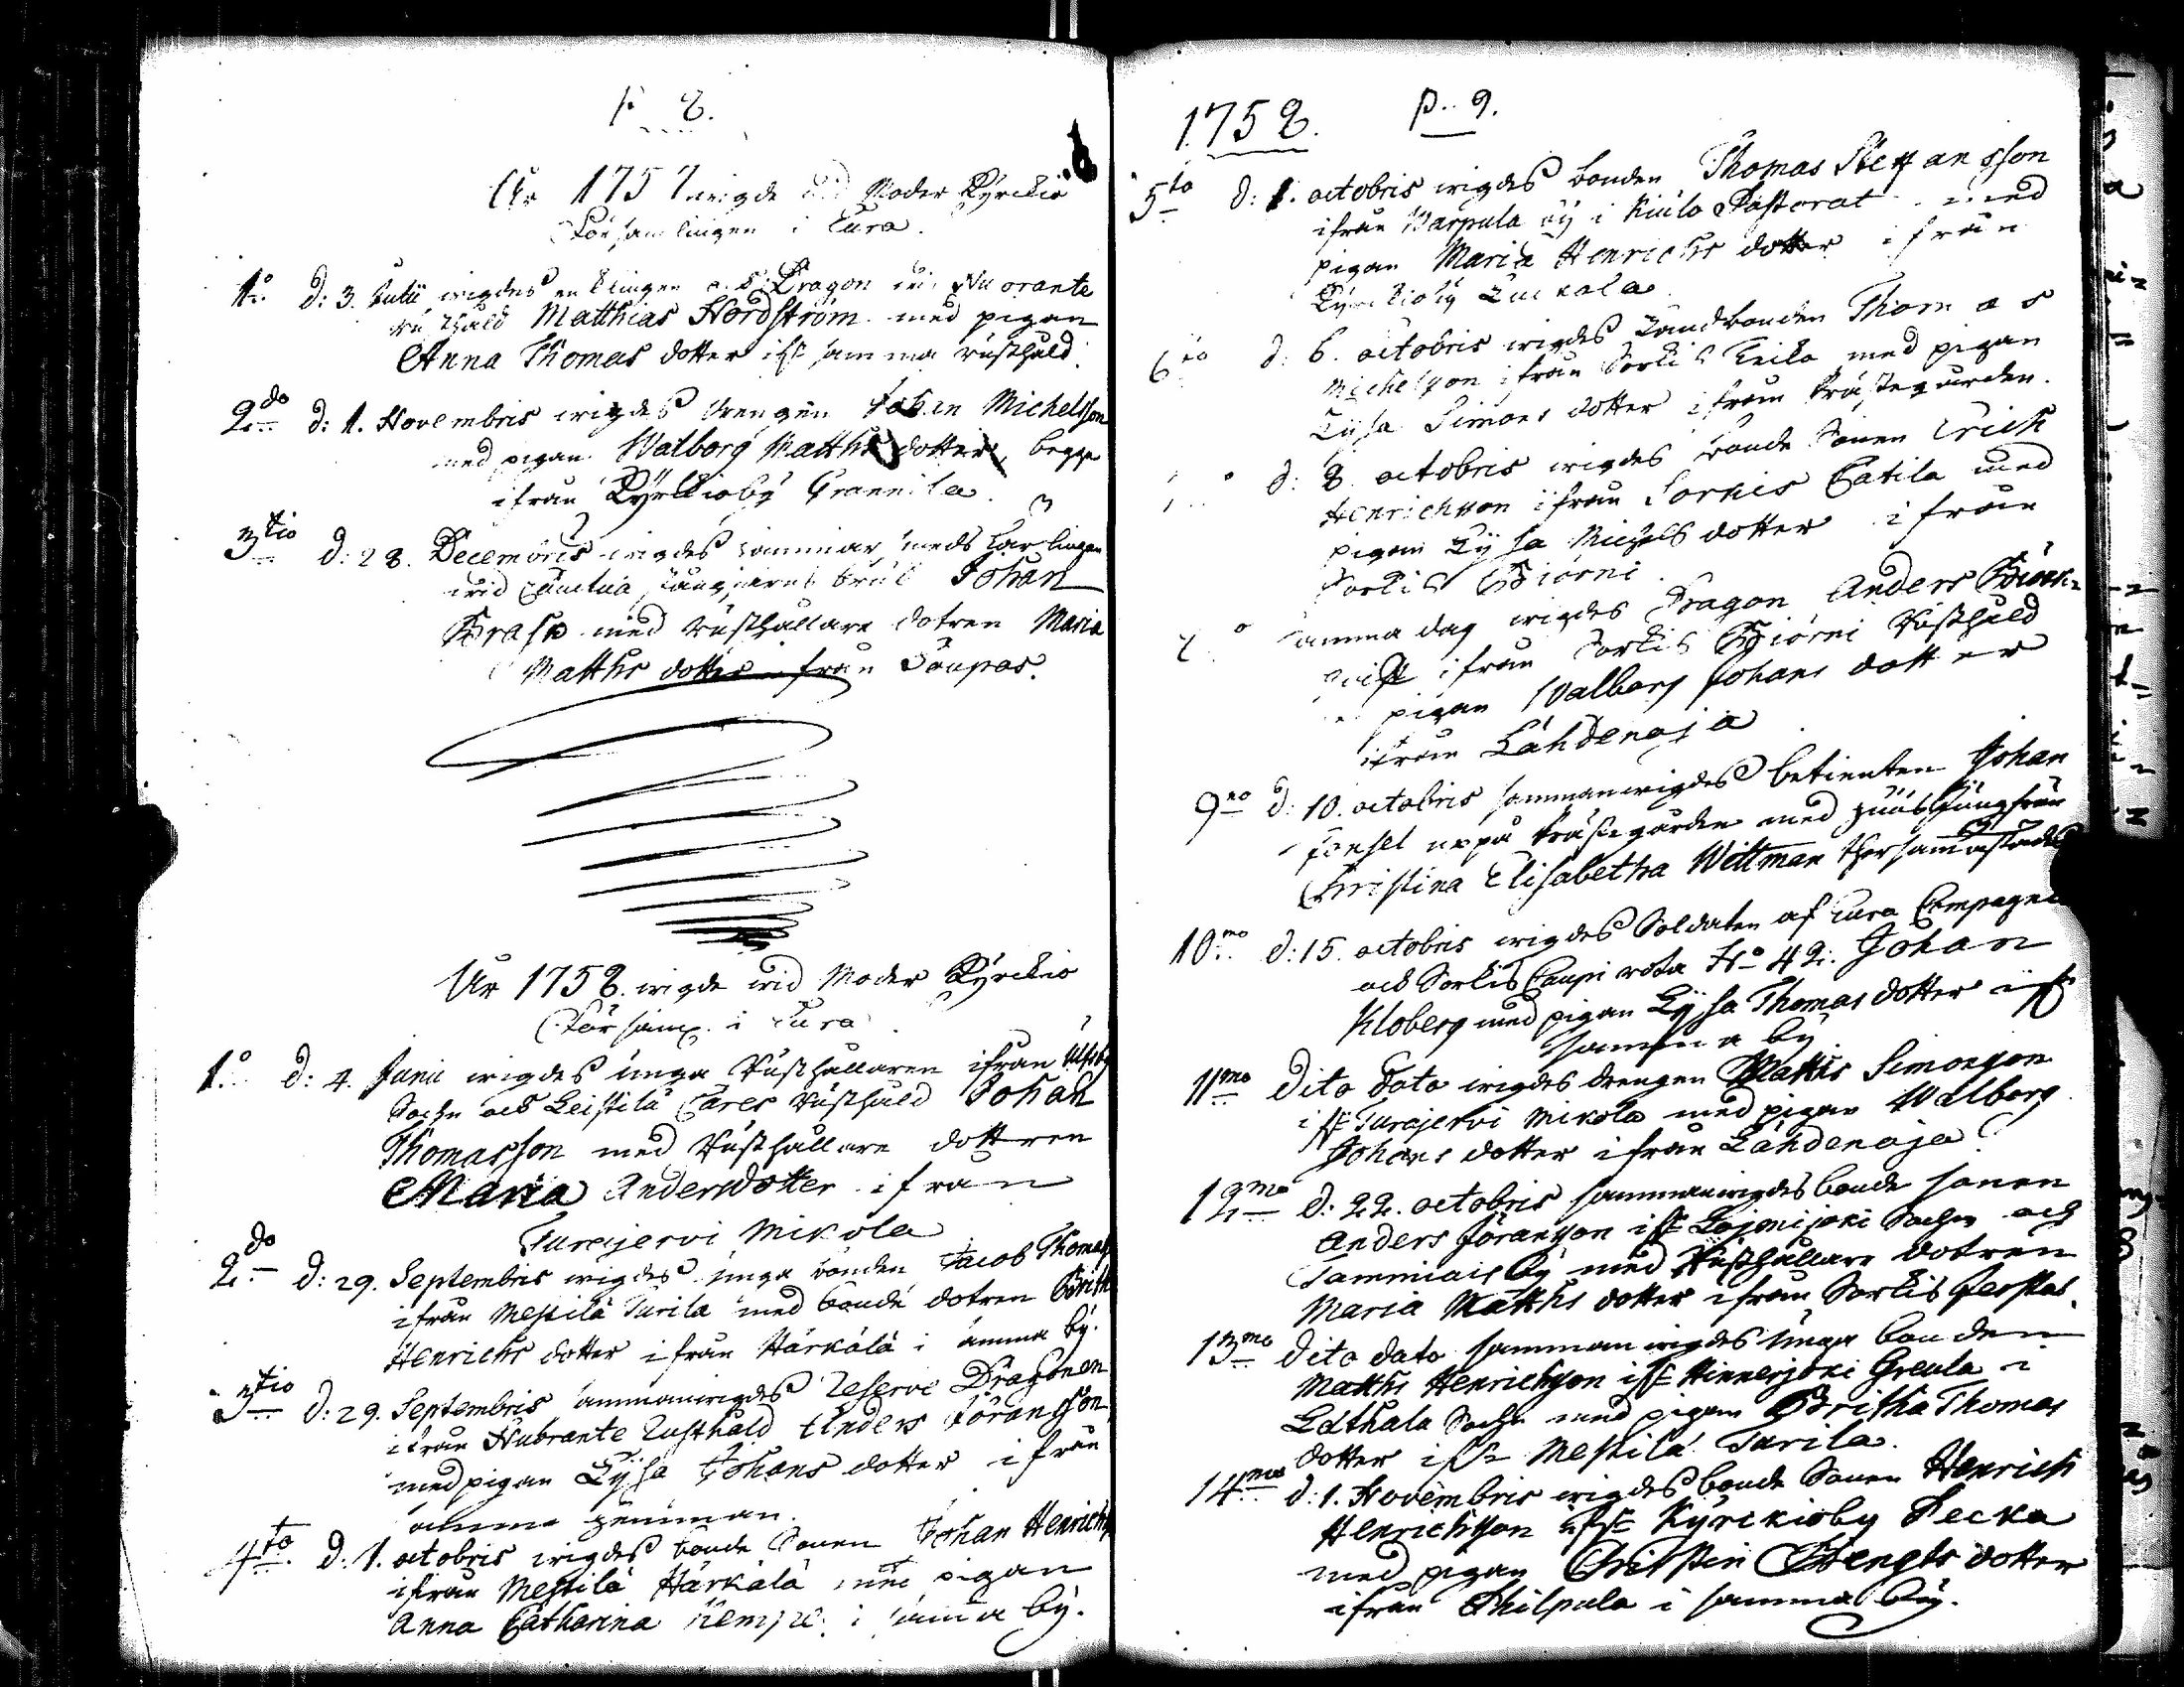 p. 8.
År 1757 wigde wid Moder Kyrckio
Församlingen i Eura.
1:o d: 3. Julii wigdes Dragon
rusthåld Matthias Nordström med pigan
Anna Thomas dotter ifr samma rusthåld.
2:do d: 1. Novembris wigdes drengen Johan Michelsson
med pigan Walborg Matths dotter, begge
ifrån Kyrckioby Grannila.
3:tio d: 28. Decembris wigdes
wid Johan
Brask med Rusthållare dotren Maria
Matths dotter från Soupas.
År 1758. wigde wid Moder Kyrckio
Församl. i Eura
1:o d: 4. Junii wigdes unga Rusthållaren ifrån Ulfsby
Sochn och Leistilä Cares Rusthåld Johan
Thomasson med Rusthållare dottren
Maria Andersdotter ifrån
Turajervi Mikola
2:do d: 29. Septembris wigdes unga bonden Jacob Thomass
ifrån Mestilä Turila med bonde dotren Brith
Henrichs dotter ifrån Härkälä i samma by.
3:tio d: 29. Septembris sammanwigdes Reserve Dragonen
ifrån Nuorante Rusthåld Anders Jöransson
med pigan Lysa Johans dotter ifrån
samma hemman.
4:to d: 1. octobris wigdes bonde Sonen Johan Henrichss
ifrån Mestilä Härkälä med pigan
Anna Catharina i samma by.
1758. p. 9.
5:to d: 1. octobris wigdes bonden Thomas Steffansson
ifrån Warpula by i Kiulo Pastorat med
pigan Maria Henrichs dotter ifrån
Kyrckioby Luckala
6:to d: 6. octobris wigdes Landbonden Thomas
Michelsson ifrån Sorkis Teilo med pigan
Lysa Simons dotter ifrån Prästegården.
d: 8. octobris wigdes bonde Sonen Erich
Henrichsson ifrån Sorkis Catila med
pigan Lysa Michels dotter ifrån
Sorkis Biörni.
Samma dag wigdes Dragon Anders Biörk-
qvist ifrån Sorkis Biörni Rusthåld
pigan Walborg Johans dotter
ifrån Lähdenoja
9:no d: 10. octobris sammanwigdes betienten Johan
Fonsel uppå Prästegården med Jungfrun
Christina Elisabetha Wittman thersammastädes
10:mo d: 15. octobris wigdes Soldaten af Eura Compagnie
och Sorkis Caupi rota No 42. Johan
Kloberg med pigan Lysa Thomas dotter ifr
samma by.
11:mo Dito dato wigdes drengen Matths Simonsson
ifr Turajervi Mikola med pigan Walborg
Johans dotter ifrån Lähdenoja
12:mo d: 22. octobris sammanwigdes bonde sonen
Anders Jöransson ifr Loimijoki Sochn och
Sammiais by med Rusthållare dotren
Maria Matths dotter ifrån Sorkis Perttas.
13:mo Dito dato sammanwigdes unga bonden
Matths Henrichsson ifr Hinnerjoki Greula i
Lethala Sochn med pigan Britha Thomas
dotter ifr Mestilä Turila.
14:mo d: 1. Novembris wigdes bonde Sonen Henrich
Henrichsson ifr Kyrckioby Pecka
med pigan Christin Bengts dotter
ifrån Philpula i samma by.